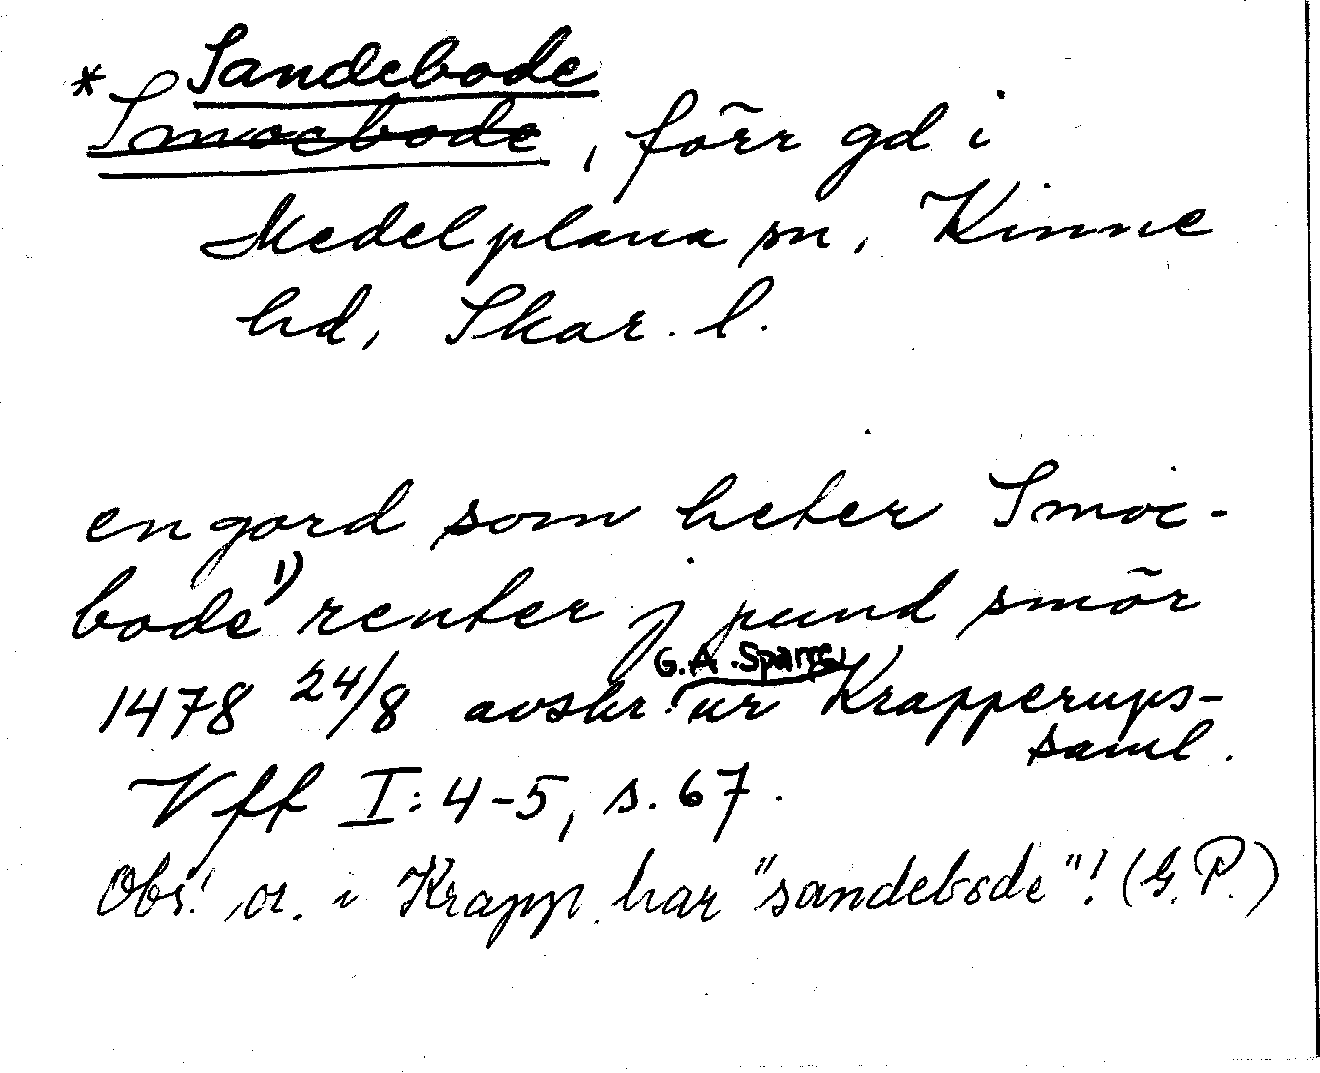 * Sandebode
Smocbode, förr gd i
Medelplana sn, Kinne
hd, Skar. l.
en gord som heter Smoc-
bode 1) renter j pund smör
G.A. Sparre,
1478 24/8 avskr. ur Krapperups-
saml.
Vff I: 4-5, s. 67.
Obs! or. i Krapp. har "sandebode"! (G.P.)